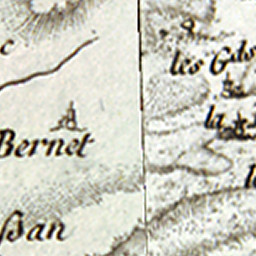 c
les Gds
la
Bernet
ßan